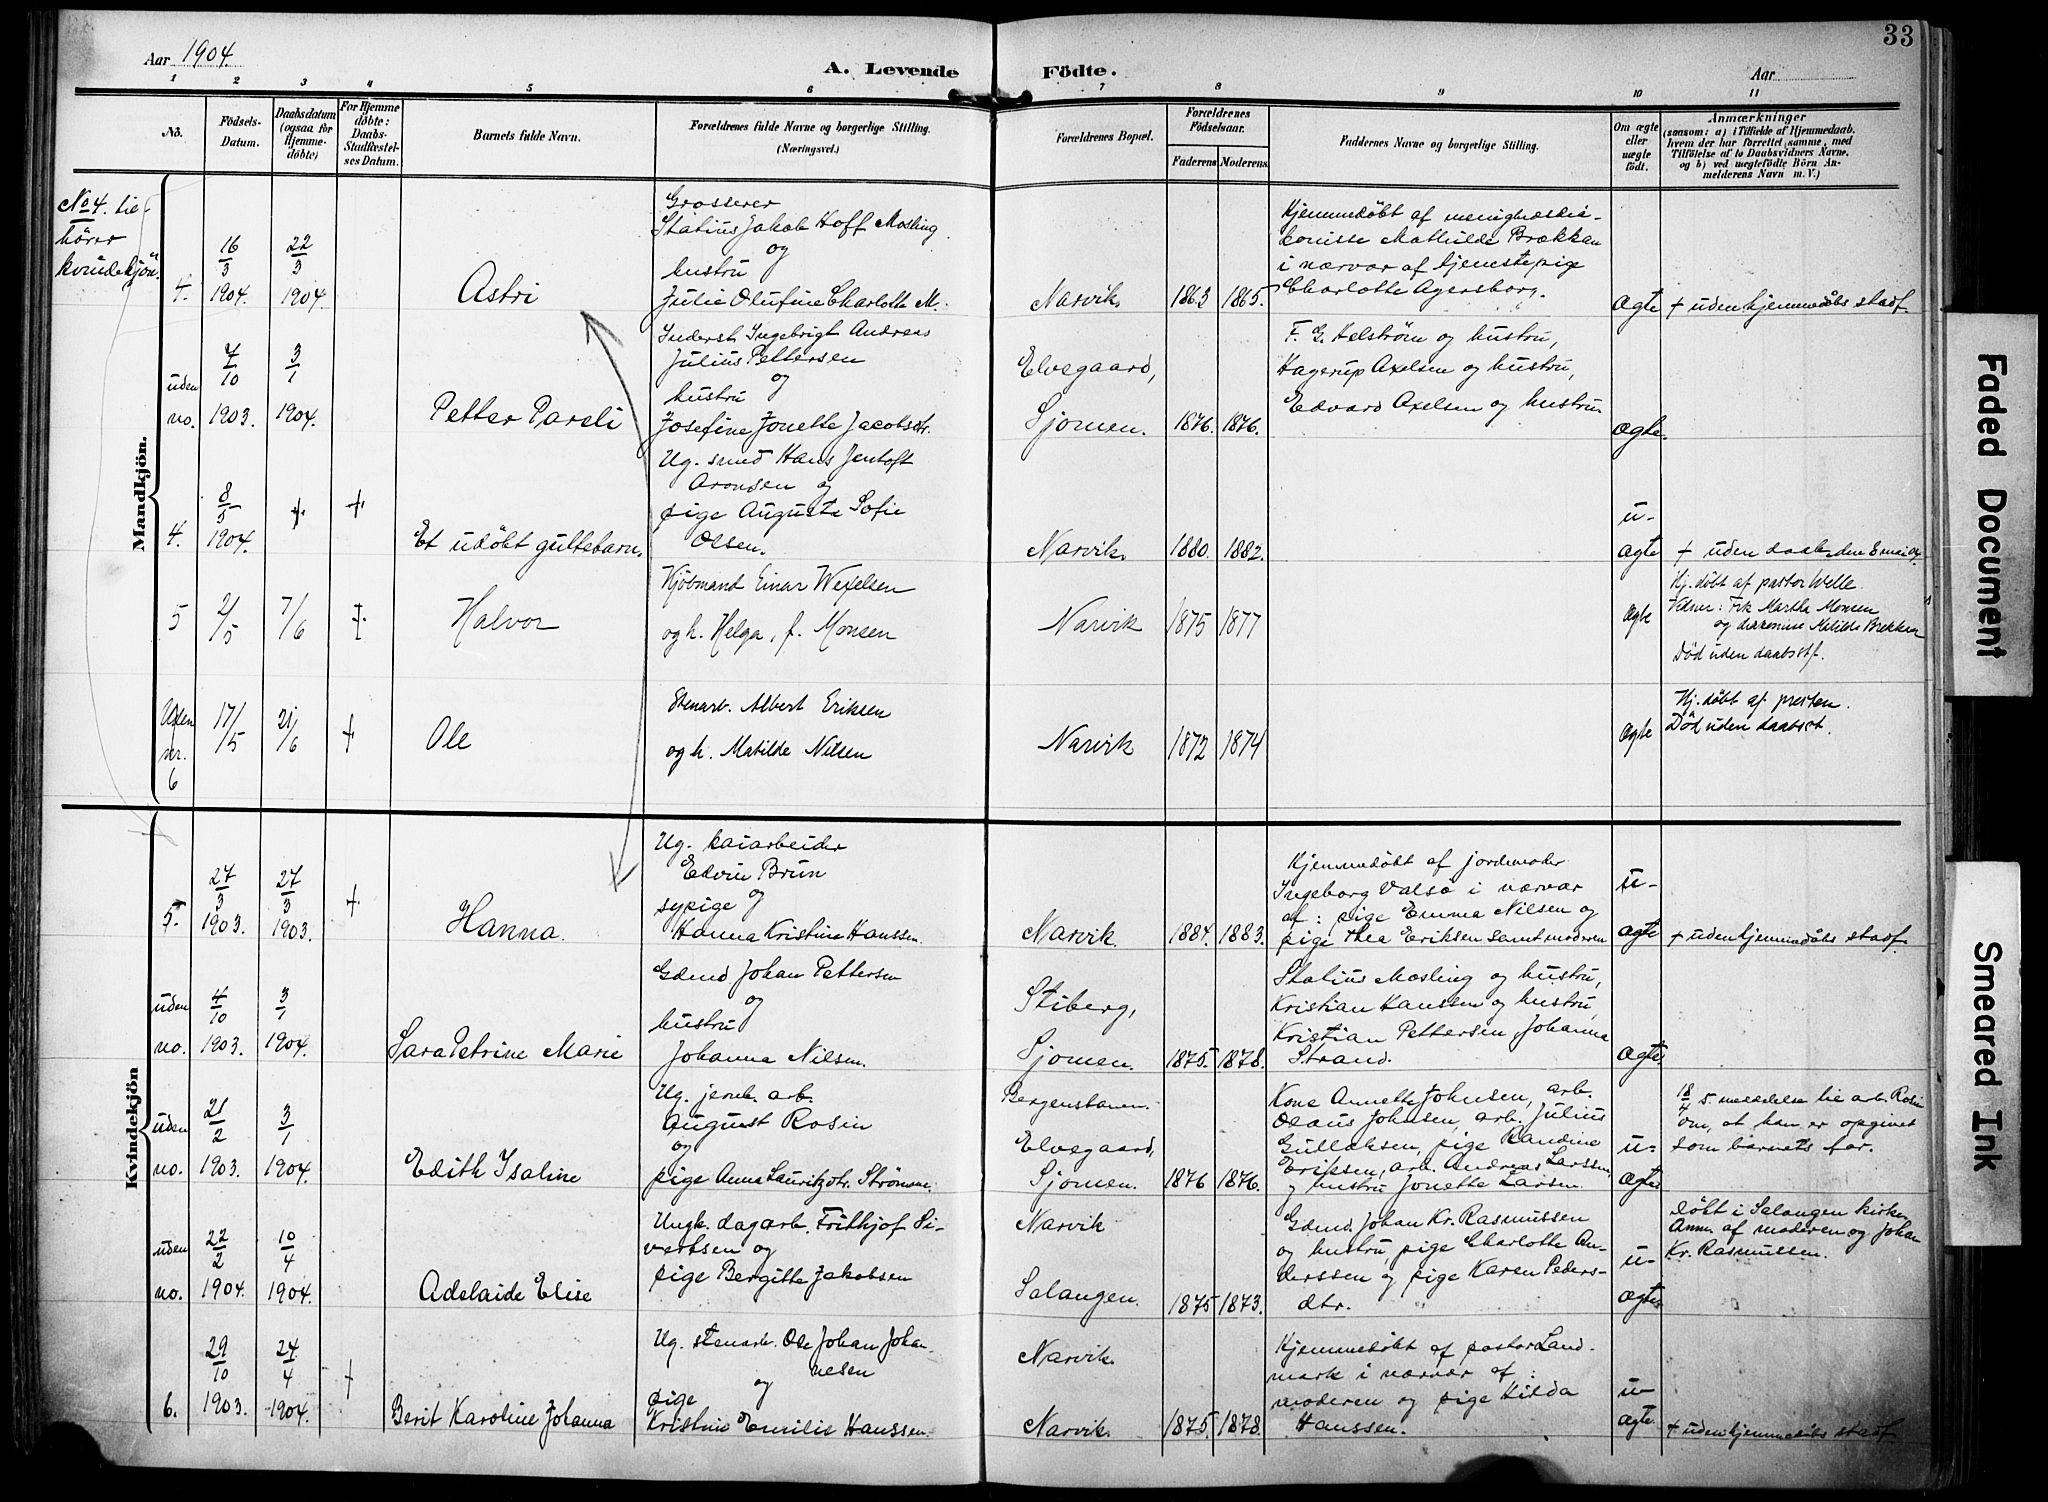 33
Aar 1904.
A. Levende Födte.
Aar
1 2 3 4 5 6 7 8 9 10 11
No.
Födsels-
Datum.
Daabsdatum
(ogsaa for
Hjemme-
döbte)
For Hjemme
döbte:
Daabs-
Stadfæstel-
ses Datum.
Barnets fulde Navn.
Forældrenes fulde Navne og borgerlige Stilling.
(Næringsvei.)
Forældrenes Bopæl.
Forældrenes
Födselsaar.
Faderens Moderens.
Faddernes Navne og borgerlige Stilling.
Om ægte
eller
uægte
födt.
Anmærkninger
(saasom: a) i Tilfælde af Hjemmedaab,
hvem der har forrettet samme, med
Tilföielse af to Daabsvidners Navne.
og b) ved uegtefödte Börn An-
melderens Navn m. V.)
Mandkjön.
No 4. til-
hører
kvindekjøn.
4.
16/3
1904.
22/3
1904.
Astri
Grosserer
Statius Jakob Hoff Mosling
og
hustru
Julie Olufine Charlotte M.
Narvik.
1863 1865.
Hjemmedøbt af menighedsdia-
konisse Mathilde Brækkan
i nærvær af tjenestepige
Charlotte Agersborg.
ægte
+ uden hjemmedåbs stadf.
uden
no.
7/10
1903.
3/1
1904.
Petter Pareli
Inderst Ingebrigt Andreas
Julius Pettersen
og
hustru
Josefine Jonette Jacobsdtr.
Elvegaard,
Sjomen.
1876. 1876.
F. G. Helstrøm og hustru,
Hagerup Axelsen og hustru,
Edvard Axelsen og hustru
ægte.
4.
8/5
1904.
+ +
Et udøbt guttebarn.
Ug. smed Hans Jentoft
Aronsen og
pige Augusta Sofie
Olsen.
Narvik.
1880. 1882.
u-
ægte
+ uden daab den 8 mai 04.
5
2/5
7/6
+
Halvor
Kjøbmand Einar Wexelsen
og h. Helga, f. Monsen
Narvik
1875 1877
ægte
Hj. døbt af pastor Welle
Vidner: Frk Martha Monsen
og diakonisse Matilde Brekkan
Død uden daabsstf.
Uden
nr.
6
17/5
21/6
+
Ole
Stenarb. Albert Eriksen
og h. Matilde Nilsen
Narvik
1872 1874
ægte
Hj. døbt af presten.
Død uden daabsst.
Kvindekjön
5.
27/3
1903.
27/3
1903.
+
Hanna.
Ug. kaiarbeider
Edvin Brun
og
sypige
Hanna Kristine Hanssen.
Narvik.
1884. 1883.
Hjemmedøbt af jordemoder
Ingeborg Valsø i nærvær
af: pige Emma Nilsen og
pige Thea Eriksen samt moderen
u-
ægte
+ uden hjemmedåbs stadf.
uden
no.
4/10
1903.
3/1
1904.
Sara Petrine Marie
Gdmd Johan Pettersen
og
hustru
Johanna Nilsen.
Stiberg,
Sjomen.
1875. 1878.
Statius Mosling og hustru,
Kristian Hanssen og hustru,
Kristian Pettersen, Johanna
Strand.
ægte.
uden
no.
21/2
1903.
3/1
1904.
Edith Isaline
Ug. jernb. arb.
August Rosin
og
pige Anna Lauritzdtr. Strømsnes.
Elvegaard,
Sjomen.
1876 1876.
Kone Annette Johnsen, arb.
Olaus Johnsen, arb. Julius
Gullaksen, pige Randine
Eriksen, arb. Andreas Larssen,
og hustru Jonette Larsen.
u-
ægte
18/4 5. meddelse til arb. Rosin
om, at han er opgivet
som barnets far.
uden
no.
22/2
1904.
10/4
1904.
Adelaide Elise
Ungk. dagarb. Frithjof Si-
vertsen og
pige Bergitte Jakobsen
Narvik
Salangen.
1875 1873.
Gdmd. Johan Kr. Rasmussen
og hustru, pige Charlotte An-
derssen og pige Karen Peders-
dtr.
u-
ægte
Døbt i Salangen kirke
Anm. af moderen og Johan
Kr. Rasmussen.
6.
29/10
1903.
24/4
1904.
+
Berit Karoline Johanna
Ug. stenarb. Ole Johan Johan-
nesen
og
pige
Kristine Emilie Hanssen.
Narvik.
Narvik.
1875. 1878.
Hjemmedøbt af pastor Land-
mark i nærvær af:
moderen og pige Hilda
Hanssen.
u-
ægte.
+ uden hjemmedåbs stadf.
Faded Document
Smeared Ink